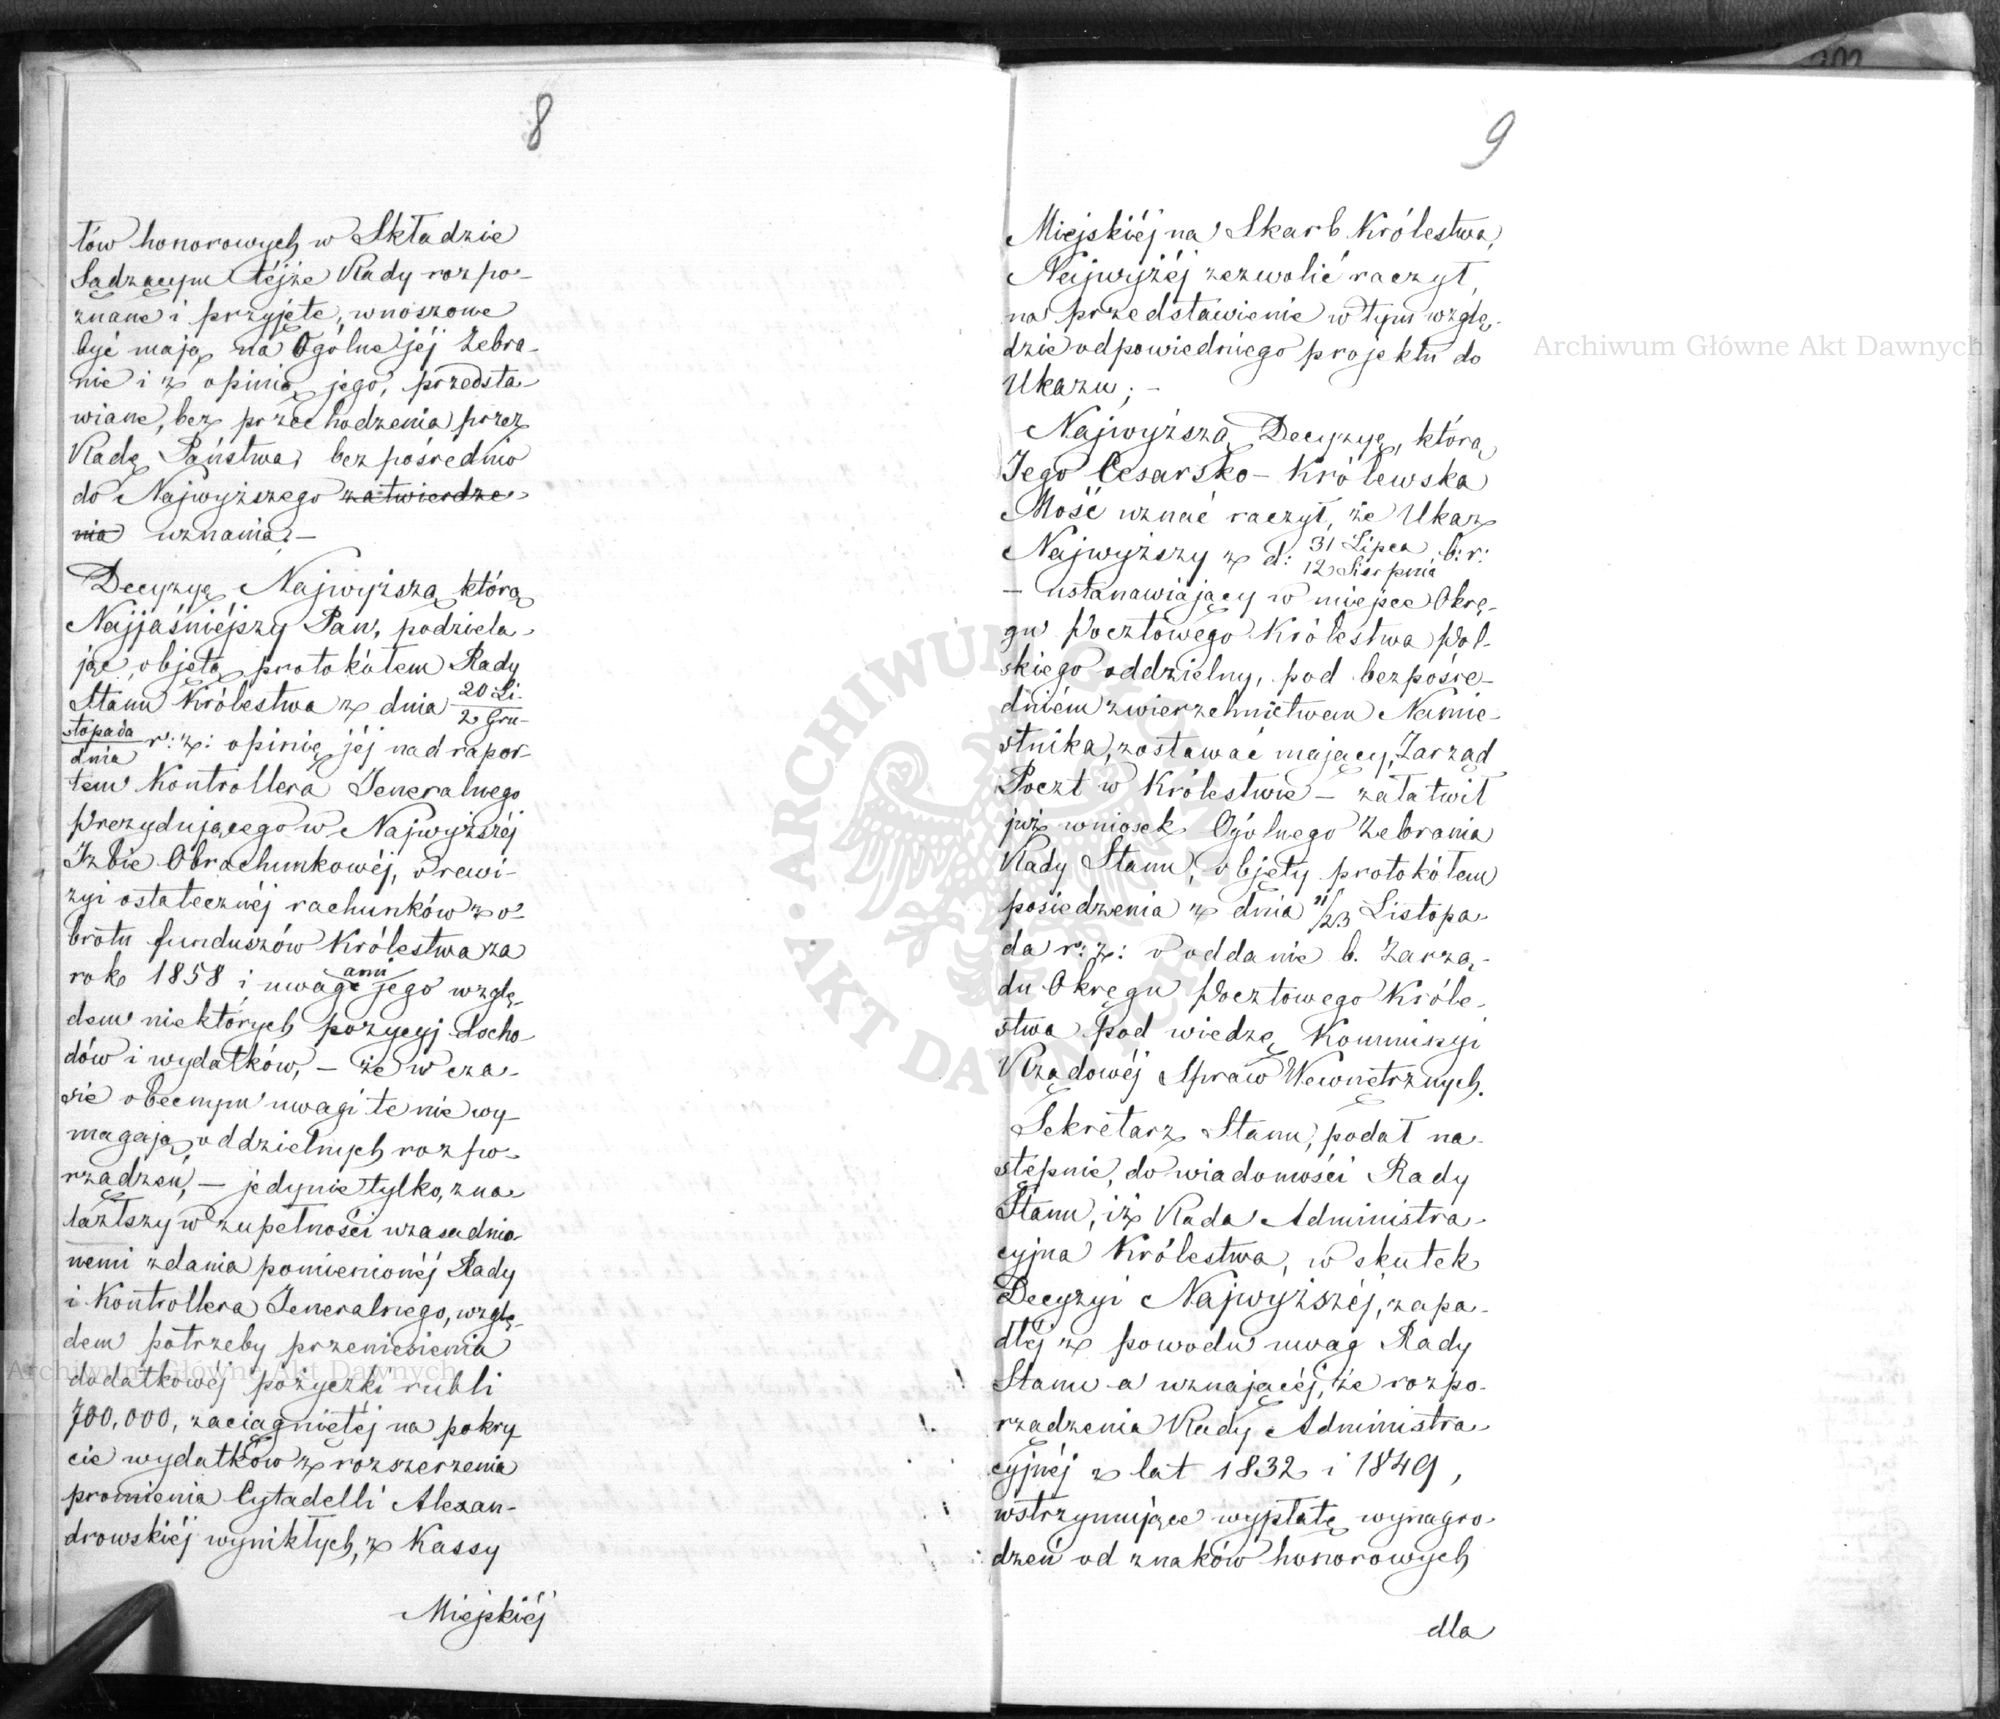 8
tów honorowych w Składzie
Sądzącym téjże Rady rozpo-
znane i przyjęte, wnoszone
być mają na Ogólne jéj Zebra-
nie i z opinią jego, przedsta-
wiane, bez przechodzenia przez
Radę Państwa, bezpośrednio
do Najwyższego zatwierdze-
nia uznania. —
Decyzyę Najwyższą którą
Najjaśniéjszy Pan, podziela-
jąc, objętą protokółem Rady
Stanu Królestwa z dnia 20 Li-
stopada / 2 Gru-
dnia r: z: opinię jéj nad rapor-
tem Kontrollera Jeneralnego
Prezydującego w Najwyższéj
Izbie Obrachunkowéj, o rewi-
zyi ostatecznéj rachunków z o-
brotu funduszów Królestwa za
rok 1858 i uwagami jego wzglę-
dem niektórych pozycyj docho-
dów i wydatków, — że w cza-
sie obecnym uwagi te nie wy-
magają oddzielnych rozpo-
rządzeń, — jedynie tylko, zna-
lazłszy w zupełności uzasadnio-
nemi zdania pomienionéj Rady
i Kontrollera Jeneralnego, wzglę-
dem potrzeby przeniesienia
dodatkowéj pożyczki rubli
700,000, zaciągniętéj na pokry-
cie wydatków z rozszerzenia
promienia Cytadelli Alexan-
drowskiéj wynikłych, z Kassy
Miejskiéj
9
Miejskiéj na Skarb Królestwa,
Najwyżéj zezwolić raczył,
na przedstawienie w tym wzglę-
dzie odpowiedniego projektu do
Ukazu; —
Najwyższą Decyzyę, którą
Jego Cesarsko-Królewska
Mość uznać raczył, że Ukaz
Najwyższy z d: 31 Lipca / 12 Sierpnia b: r:
— ustanawiający w miejsce Okrę-
gu Pocztowego Królestwa Pol-
skiego oddzielny, pod bezpośre-
dniém zwierzchnictwem Namie-
stnika, zostawać mający, Zarząd
Poczt w Królestwie — załatwił
już wniosek Ogólnego Zebrania
Rady Stanu, objęty protokółem
posiedzenia z dnia 11/23 Listopa-
da r: z: o oddanie b. Zarzą-
du Okręgu Pocztowego Króle-
stwa pod wiedzę Kommisyi
Rządowéj Spraw Wewnętrznych.
Sekretarz Stanu, podał na-
stępnie, do wiadomości Rady
Stanu, iż Rada Administra-
cyjna Królestwa, w skutek
Decyzyi Najwyższéj, zapa-
dłéj z powodu uwag Rady
Stanu a uznającéj, że rozpo-
rządzenia Rady Administra-
cyjnéj z lat 1832 i 1849,
wstrzymujące wypłatę wynagro-
dzeń od znaków honorowych
dla
Archiwum Główne Akt Dawnych
Archiwum Główne Akt Dawnych